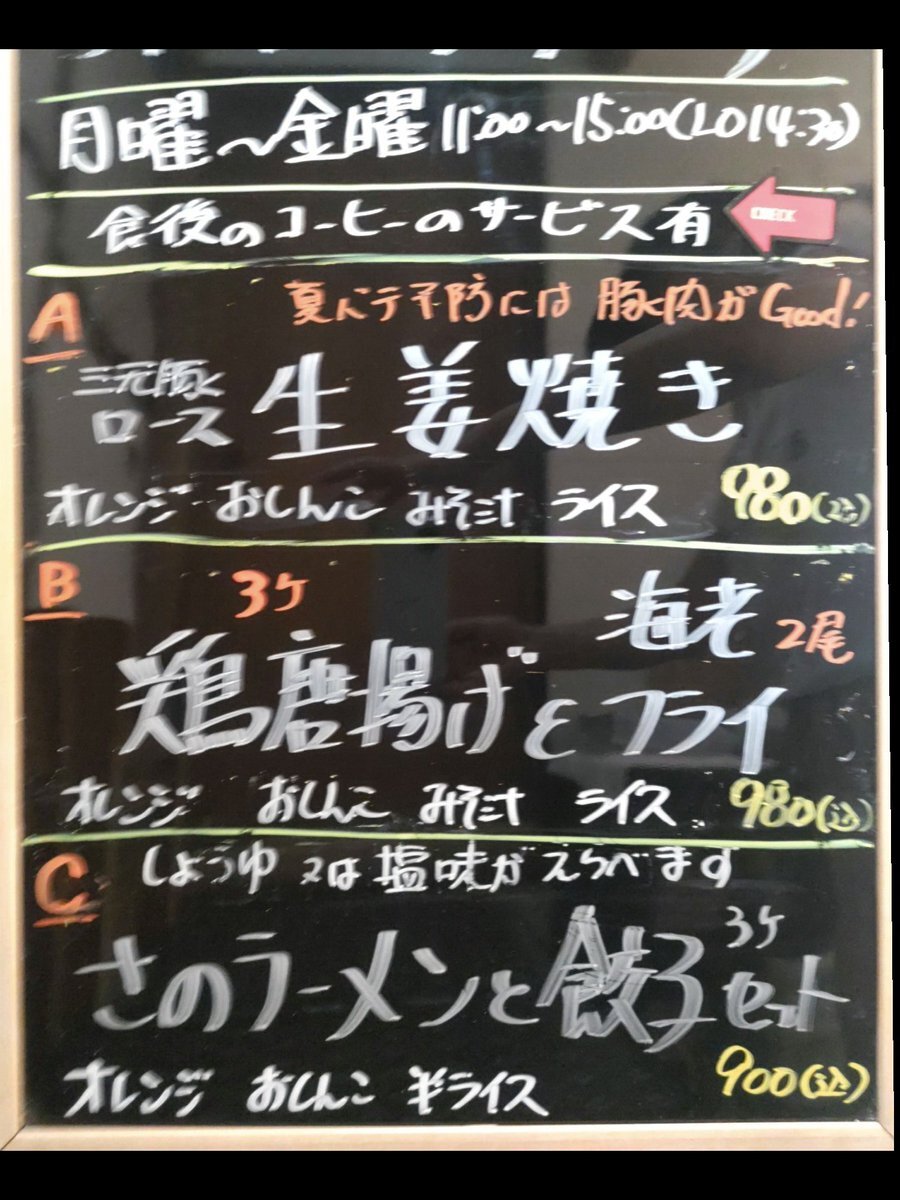 月曜～金曜 11:00～15:00(LO14:30)
食後のコーヒーのサービス有
CHECK
A 夏バテ予防には 豚肉がGood!
三元豚
ロース 生姜焼き
オレンジ おしんこ みそ汁 ライス 980(込)
B 3ヶ 海老 2尾
鶏唐揚げと フライ
オレンジ おしんこ みそ汁 ライス 980(込)
C しょうゆ 又は 塩味が えらべます
さのラーメンと餃子 3ヶ セット
オレンジ おしんこ 半ライス 900(込)